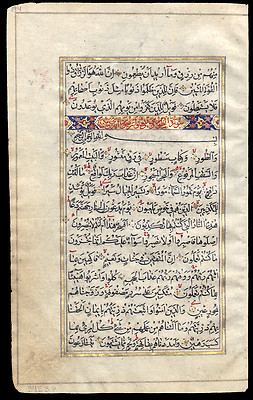 منهم من رزق وما اريد ان يطعمون ان الله هو الرزاق ذو
القوة المتين فان للذين ظلموا ذنوبا مثل ذنوب اصحابهم
فلا يستعجلون فويل للذين كفروا من يومهم الذي يوعدون
بسم الله الرحمن الرحيم
والطور وكتاب مسطور في رق منشور والبيت المعمور
والسقف المرفوع والبحر المسجور ان عذاب ربك لواقع ما له من
دافع يوم تمور السماء مورا وتسير الجبال سيرا فويل يومئذ
للمكذبين الذين هم في خوض يلعبون يوم يدعون الى نار جهنم دعا هذه
النار التي كنتم بها تكذبون افسحر هذا ام انتم لا تبصرون
اصلوها فاصبروا او لا تصبروا سواء عليكم انما تجزون
ما كنتم تعملون ان المتقين في جنات ونعيم فاكهين بما
آتيهم ربهم ووقيهم ربهم عذاب الجحيم كلوا واشربوا هنيئا
بما كنتم تعملون متكئين على سرر مصفوفة وزوجناهم
بحور عين والذين آمنوا واتبعتهم ذريتهم بايمان الحقنا
بهم ذريتهم وما التناهم من عملهم من شيء كل امرئ بما
كسب رهين وامددناهم بفاكهة ولحم مما يشتهون يتنازعون